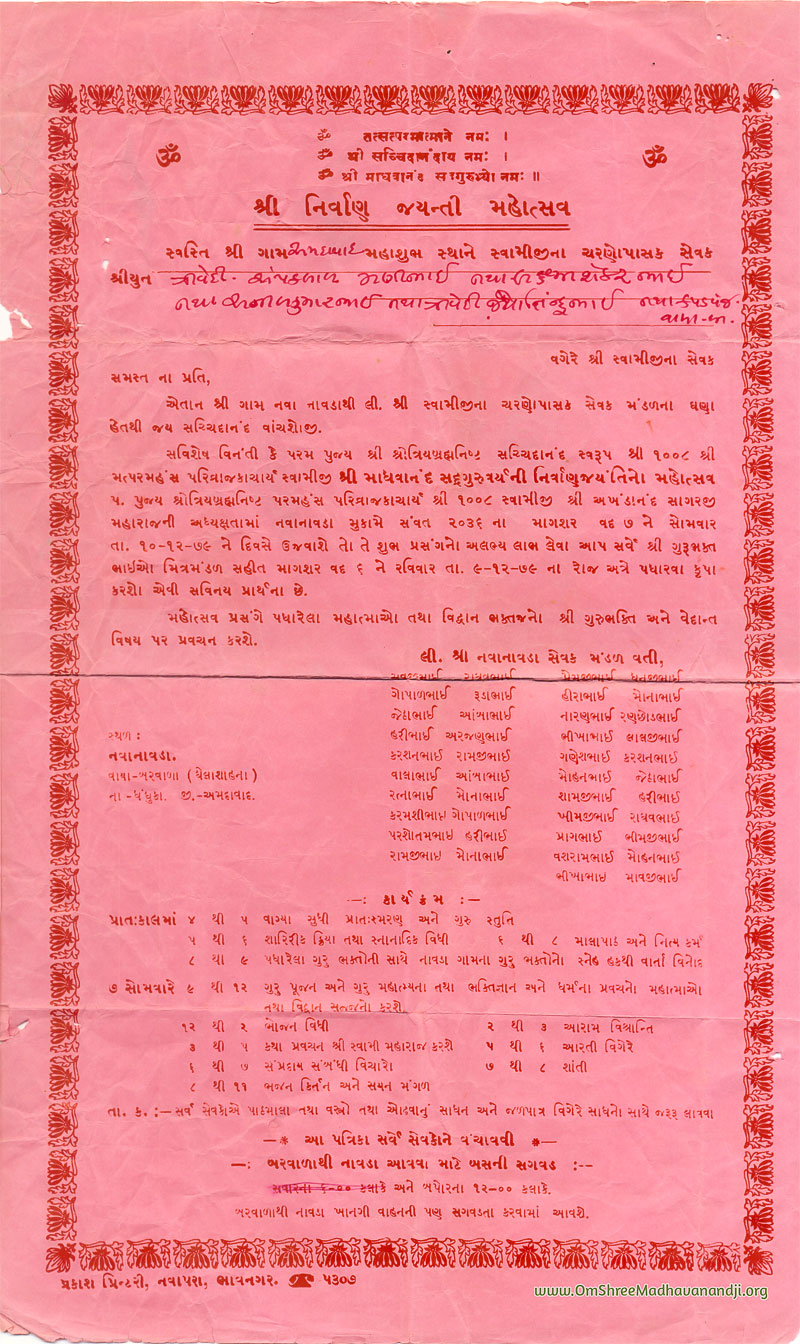 ૐ તત્સત્પરમાત્માને નમઃ ।
ૐ
ૐ શ્રી સચ્ચિદાનંદાય નમઃ ।
ૐ
ૐ શ્રી માધવાનંદ સદ્ગુરુભ્યો નમઃ ॥
શ્રી નિર્વાણ જયન્તી મહોત્સવ
સ્વસ્તિ શ્રી ગામ અમદાવાદ મહાશુભ સ્થાને સ્વામીજીના ચરણોપાસક સેવક
શ્રીયુત ત્રીવેદી. ચંપકલાલ મણીભાઈ તથા
તથા અનીલકુમારભાઈ તથા ત્રીવેદી તથા
વગેરે શ્રી સ્વામીજીના સેવક
સમસ્ત ના પ્રતિ,
એતાન શ્રી ગામ નવા નાવડાથી લી. શ્રી સ્વામીજીના ચરણોપાસક સેવક મંડળના ઘણા
હેતથી જય સચ્ચિદાનંદ વાંચશોજી.
સવિશેષ વિનંતી કે પરમ પુજય શ્રી શ્રોત્રિયબ્રહ્મનિષ્ટ સચ્ચિદાનંદ સ્વરૂપ શ્રી ૧૦૦૮ શ્રી
મત્પરમહંસ પરિવ્રાજકાચાર્ય સ્વામીજી શ્રી માધવાનંદ સદ્ગુરુવર્યની નિર્વાણજયંતિનો મહોત્સવ
પ. પુજય શ્રોત્રિયબ્રહ્મનિષ્ટ પરમહંસ પરિવ્રાજકાચાર્ય શ્રી ૧૦૦૮ સ્વામીજી શ્રી અખંડાનંદ સાગરજી
મહારાજની અધ્યક્ષતામાં નવાનાવડા મુકામે સંવત ૨૦૩૬ ના માગશર વદ ૭ ને સોમવાર
તા. ૧૦-૧૨-૭૯ ને દિવસે ઉજવાશે તો તે શુભ પ્રસંગનો અલભ્ય લાભ લેવા આપ સર્વે શ્રી ગુરૂભક્ત
ભાઈઓ મિત્રમંડળ સહીત માગશર વદ ૬ ને રવિવાર તા. ૯-૧૨-૭૯ ના રોજ અત્રે પધારવા કૃપા
કરશો એવી સવિનય પ્રાર્થના છે.
મહોત્સવ પ્રસંગે પધારેલા મહાત્માઓ તથા વિદ્વાન ભક્તજનો શ્રી ગુરુભક્તિ અને વેદાન્ત
વિષય પર પ્રવચન કરશે.
લી. શ્રી નવાનાવડા સેવક મંડળ વતી,
સવજીભાઈ રાઘવભાઈ પ્રેમજીભાઈ ધનજીભાઈ
ગોપાળભાઈ રૂડાભાઈ હીરાભાઈ મોનાભાઈ
જેઠાભાઈ આંબાભાઈ નારણભાઈ રણછોડભાઈ
સ્થળ :
હરીભાઈ અરજણભાઈ ભીખાભાઈ લાલજીભાઈ
નવાનાવડા.
કરશનભાઈ રામજીભાઈ ગણેશભાઈ કરશનભાઈ
વાયા-બરવાળા (ઘેલાશાહના)
વાલાભાઈ આંબાભાઈ મોહનભાઈ જેઠાભાઈ
તા -ધંધુકા. જી.-અમદાવાદ.
રત્નાભાઈ મોનાભાઈ શામજીભાઈ હરીભાઈ
કરમશીભાઇ ગોપાળભાઈ ખીમજીભાઈ રાઘવભાઈ
પરશોતમભાઇ હરીભાઈ પ્રાગભાઈ ભીમજીભાઈ
રામજીભાઇ મોનાભાઈ વશરામભાઈ મોહનભાઈ
ભીખાભાઈ માવજીભાઈ
—: કાર્યક્રમ :—
પ્રાતઃકાલમાં ૪ થી ૫ વાગ્યા સુધી પ્રાતઃસ્મરણ અને ગુરુ સ્તુતિ
૫ થી ૬ શારિરીક ક્રિયા તથા સ્નાનાદિક વિધી ૬ થી ૮ માલાપાઠ અને નિત્ય કર્મ
૮ થી ૯ પધારેલા ગુરુ ભક્તોની સાથે નાવડા ગામના ગુરુ ભક્તોનો સ્નેહ હકથી વાર્તા વિનોદ
૭ સોમવારે ૯ થી ૧૨ ગુરુ પૂજન અને ગુરુ મહાત્મ્યના તથા ભક્તિજ્ઞાન અને ધર્મના પ્રવચનો મહાત્માઓ
તથા વિદ્વાન સજ્જનો કરશે.
૧૨ થી ૨ ભોજન વિધી ૨ થી ૩ આરામ વિશ્રાન્તિ
૩ થી ૫ કથા પ્રવચન શ્રી સ્વામી મહારાજ કરશે ૫ થી ૬ આરતી વિગેરે
૬ થી ૭ સંપ્રદાય સંબંધી વિચારો ૭ થી ૮ શાંતી
૮ થી ૧૧ ભજન કિર્તન અને સમન મંગળ
તા. ક. :—સર્વ સેવકોએ પાઠમાલા તથા વસ્ત્રો તથા ઓઢવાનું સાધન અને જળપાત્ર વિગેરે સાધનો સાથે જરૂર લાવવા
—* આ પત્રિકા સર્વે સેવકોને વંચાવવી *—
—: બરવાળાથી નાવડા આવવા માટે બસની સગવડ :--
સવારના ૬-૦૦ કલાકે અને બપોરના ૧૨-૦૦ કલાકે.
બરવાળાથી નાવડા ખાનગી વાહનની પણ સગવડતા કરવામાં આવશે.
પ્રકાશ પ્રિન્ટરી, નવાપરા, ભાવનગર. ☎ ૫૩૦૭
www.OmShreeMadhavanandji.org